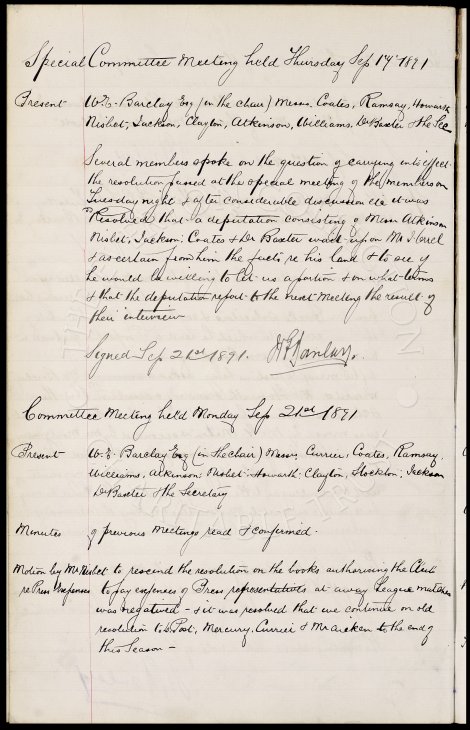 Special Committee Meeting held Thursday Sep 17th 1891
Present W.E. Barclay Esq (in the chair) Messrs. Coates, Ramsay, Howarth
Nisbet, Jackson, Clayton, Atkinson, Williams, Dr Baxter & the Sec
Several members spoke on the question of carrying into effect
the resolution passed at the special meeting of the members on
Tuesday night & after considerable discussion it was
Resolved that a deputation consisting of Messrs Atkinson
Nisbet, Jackson, Coates & Dr Baxter wait upon Mr Orrel
& ascertain from him the facts re his land & to see if
he would be willing to let us a portion & on what terms
& that the deputation report to the next Meeting the result of
their interview
Signed Sep 21st 1891.
Committee Meeting held Monday Sep 21st 1891
Present W.E. Barclay Esq (in the chair) Messrs, Currier, Coates, Ramsay
Williams, Atkinson, Nisbet, Howarth, Clayton, Stockton, Jackson
Dr Baxter & the Secretary
Minutes of previous Meetings read & confirmed.
Motion by Mr Nisbet to rescind the resolution on the books authorising the Club
re Press Expenses to pay expenses of Press representatives at away League matches
was negatived - & it was resolved that we continue on old
resolution to Post, Mercury, Currier & Mr Aicken to the end of
this Season -